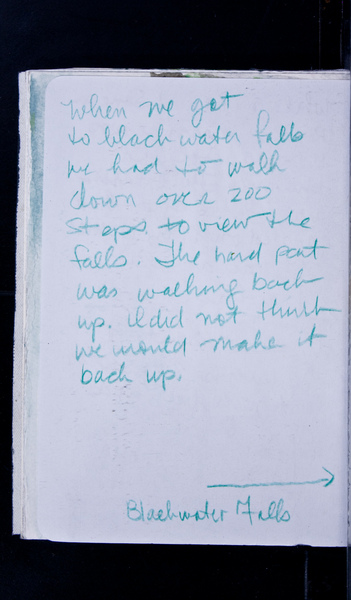 When we got
to black water falls
we had to walk
down over 200
steps to view the
falls. The hard part
was walking back
up. I did not think
we would make it
back up.
Blackwater Falls